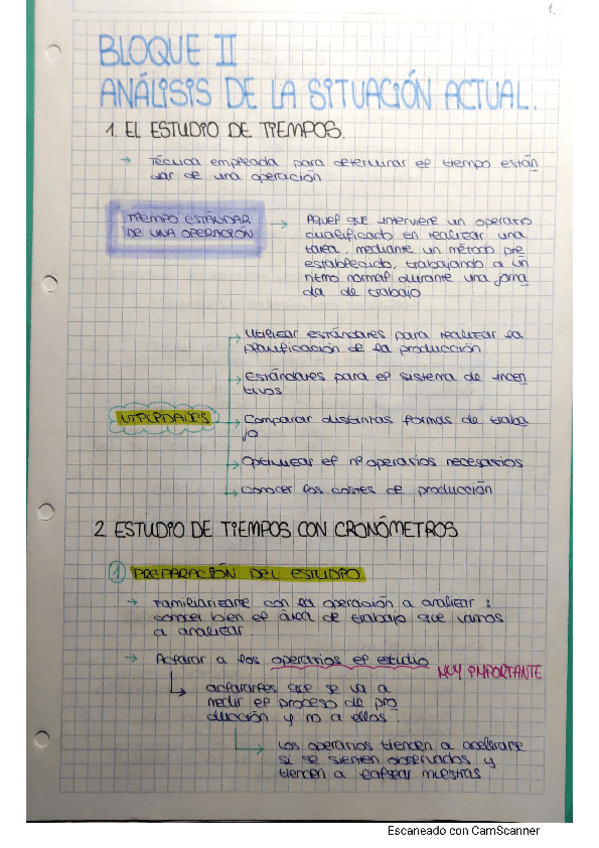 1.
BLOQUE II
ANÁLISIS DE LA SITUACIÓN ACTUAL.
1. EL ESTUDIO DE TIEMPOS.
→ Técnica empleada para determinar el tiempo están
dar de una operación
TIEMPO ESTÁNDAR → Aquel que interviene un operario
DE UNA OPERACIÓN cualificado en realizar una
tarea, mediante un método pre
establecido, trabajando a un
ritmo normal durante una jorna
da de trabajo
Utilizar estándares para realizar la
planificación de la producción
Estándares para el sistema de incen
tivos
UTILIDADES → Comparar distintas formas de traba
jo
Optimizar el nº operarios necesarios
Conocer los costes de producción
2 ESTUDIO DE TIEMPOS CON CRONÓMETROS
1 PREPARACIÓN DEL ESTUDIO
→ Familiarizarte con la operación a analizar:
conocer bien el área de trabajo que vamos
a analizar.
→ Aclarar a los operarios el estudio MUY IMPORTANTE
aclararles que se va a
medir el proceso de pro
ducción y no a ellos.
Los operarios tienden a acelerarse
si se sienten observados y
tienden a falsear muestras
Escaneado con CamScanner